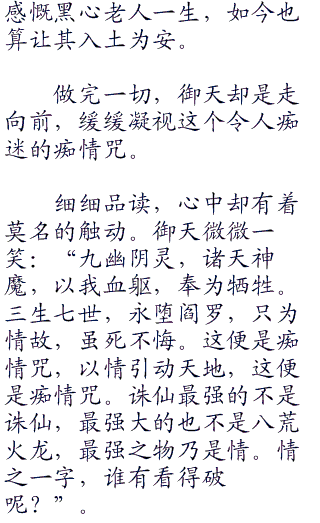 感慨黑心老人一生，如今也
算让其入土为安。
做完一切，御天却是走
向前，缓缓凝视这个令人痴
迷的痴情咒。
细细品读，心中却有着
莫名的触动。御天微微一
笑：“九幽阴灵，诸天神
魔，以我血躯，奉为牺牲。
三生七世，永堕阎罗，只为
情故，虽死不悔。这便是痴
情咒，以情引动天地，这便
是痴情咒。诛仙最强的不是
诛仙，最强大的也不是八荒
火龙，最强之物乃是情。情
之一字，谁有看得破
呢？”。